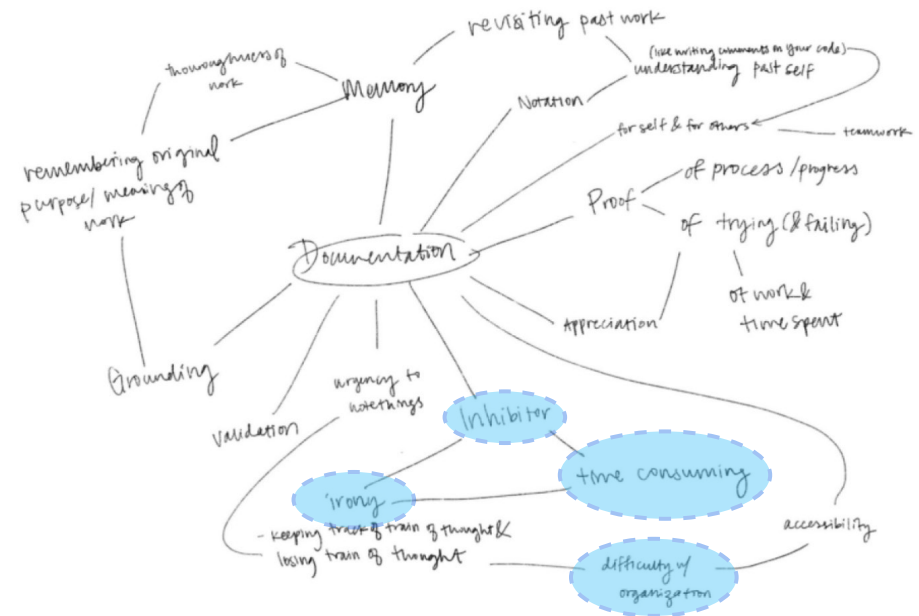 revisiting past work
(like writing comments on your code)
understanding past self
thouroughness of
work
Memory
Notation
for self & for others
teamwork
remembering original
purpose/meaning of
work
Proof
of process/progress
of trying (& failing)
of work &
time spent
Documentation
Appreciation
Grounding
urgency to
note things
Validation
Inhibitor
time consuming
irony
- keeping track of train of thought &
losing train of thought
accessibility
difficulty w/
organization